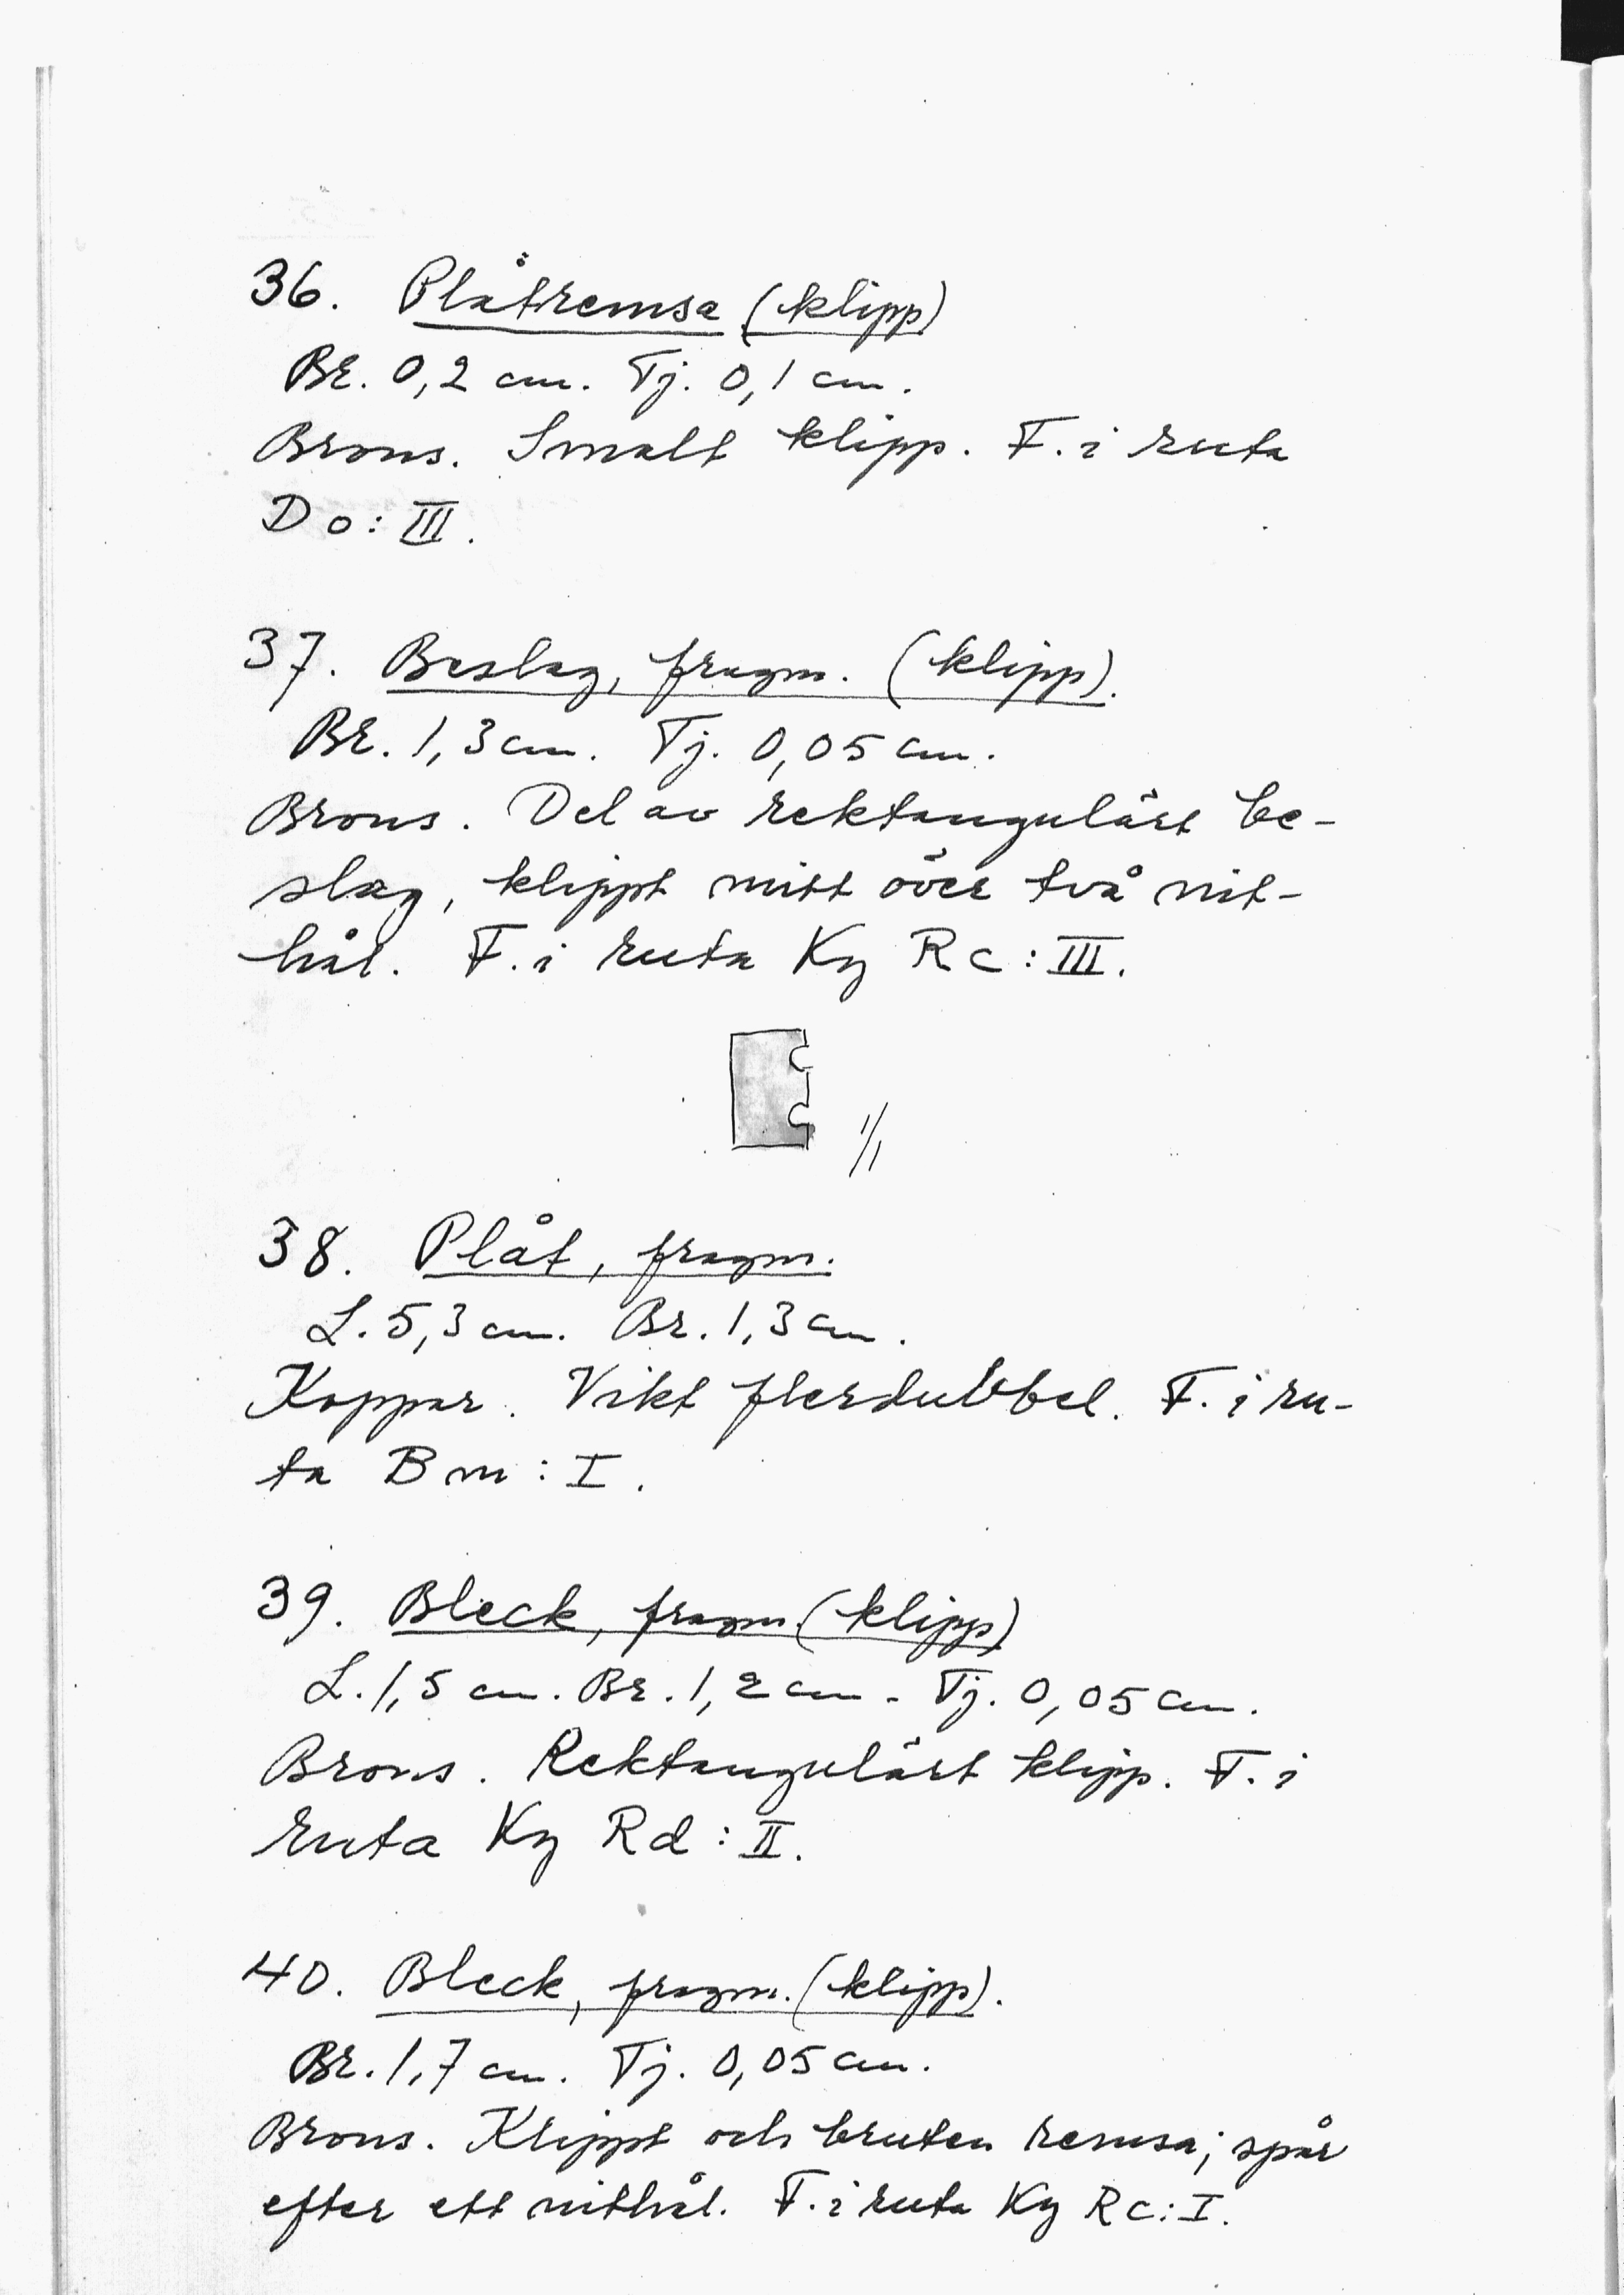 36. Plåtremsa (klipp)
Br. 0,2 cm. Tj. 0,1 cm.
Brons. Smalt klipp. F. i ruta
Do: III.
37. Beslag, fragm. (klipp).
Br. 1,3 cm. Tj. 0,05 cm.
Brons. Del av rektangulärt be-
slag, klippt mitt över två nit-
hål. F. i ruta Ky Rc: III.
1/1
38. Plåt, fragm.
L. 5,3 cm. Br. 1,3 cm.
Koppar. Vikt flerdubbel. F. i ru-
ta Bm: I.
39. Bleck, fragm. (klipp)
L. 1,5 cm. Br. 1,2 cm. Tj. 0,05 cm.
Brons. Rektangulärt klipp. F. i
ruta Ky Rd: II.
40. Bleck, fragm. (klipp).
Br. 1,7 cm. Tj. 0,05 cm.
Brons. Klippt och bruten remsa; spår
efter ett nithål. F. i ruta Ky Rc: I.